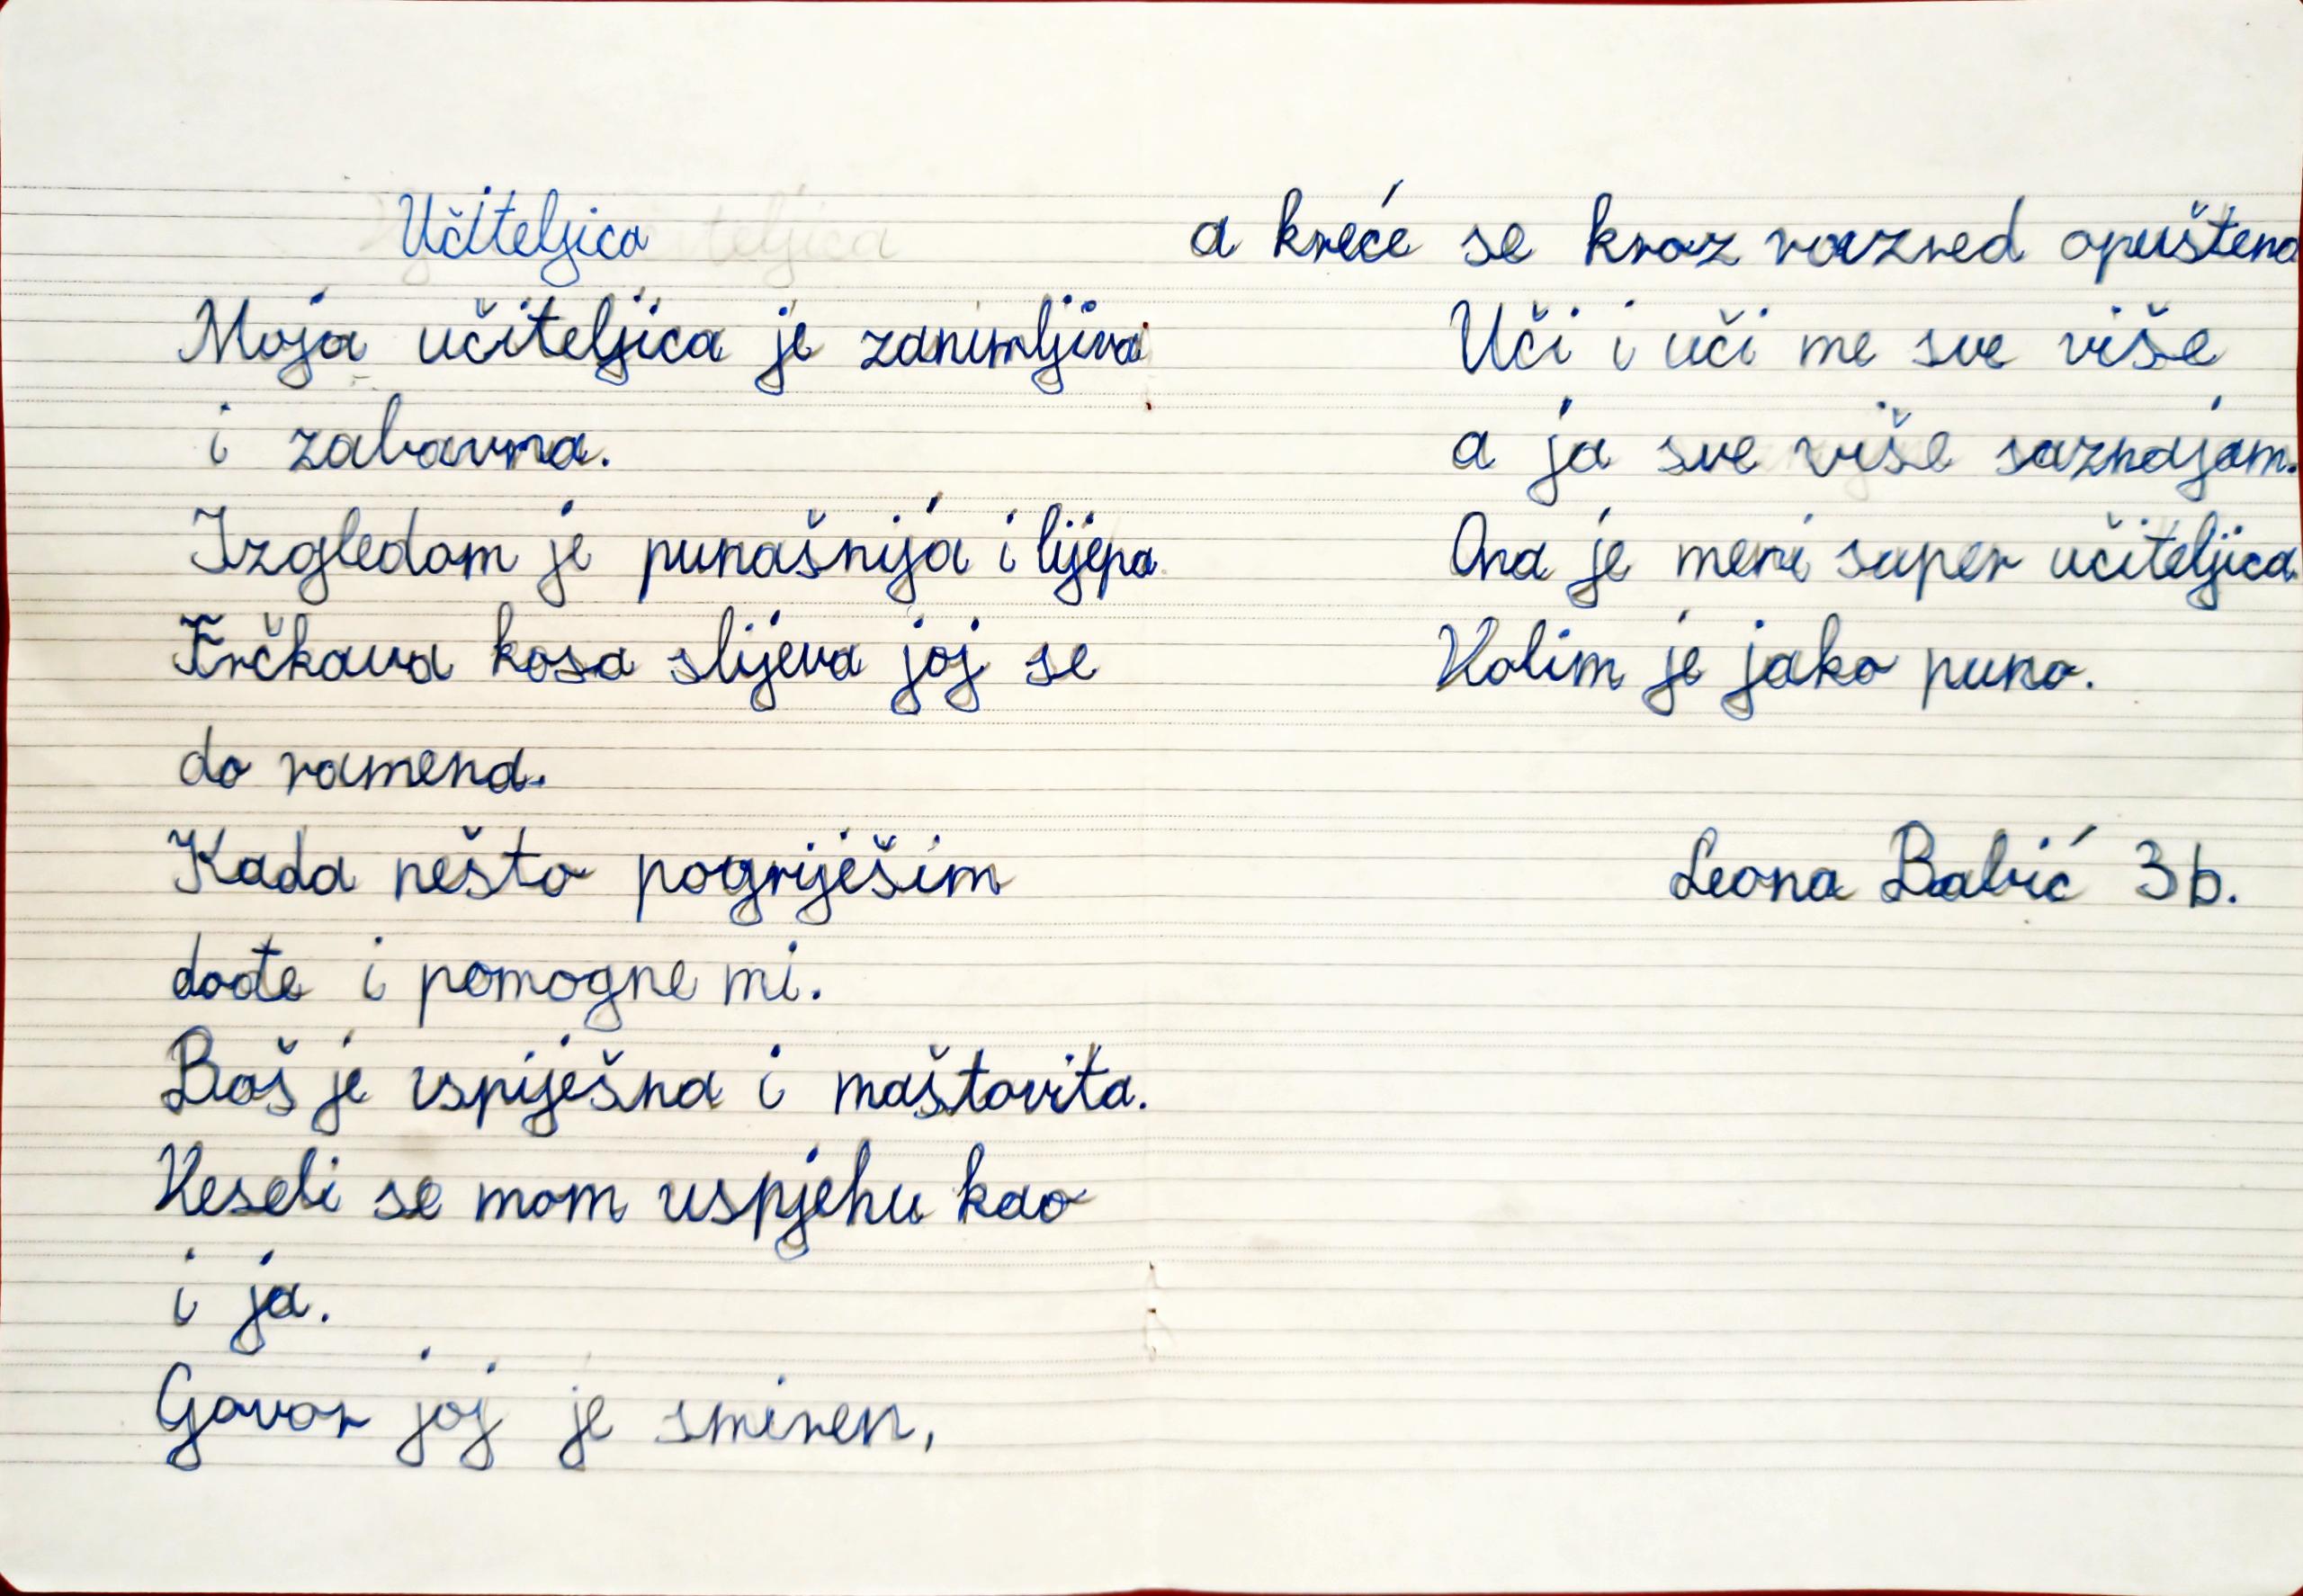 Učiteljica
Moja učiteljica je zanimljiva
i zabavna.
Izgledom je punašnija i lijepa
Frčkava kosa slijeva joj se
do ramena.
Kada nešto pogriješim
dođe i pomogne mi.
Baš je uspiješna i maštovita.
Veseli se mom uspjehu kao
i ja.
Govor joj je smiren,
a kreće se kroz razred opuštena
Uči i uči me sve više
a ja sve više saznajam.
Ona je meni super učiteljica.
Volim je jako puno.
Leona Babić 3b.